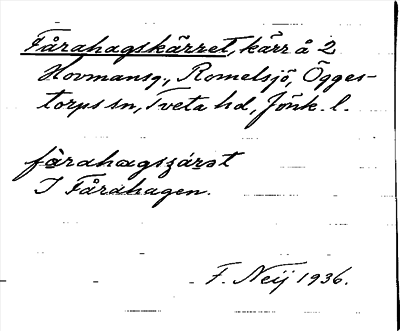 Fårahagskärret, kärr å 2
Hovmansg., Romelsjö, Ögges-
torps sn, Tveta hd, Jönk. l.
fàrahagsʒárət
I Fårahagen.
F. Neij 1936.